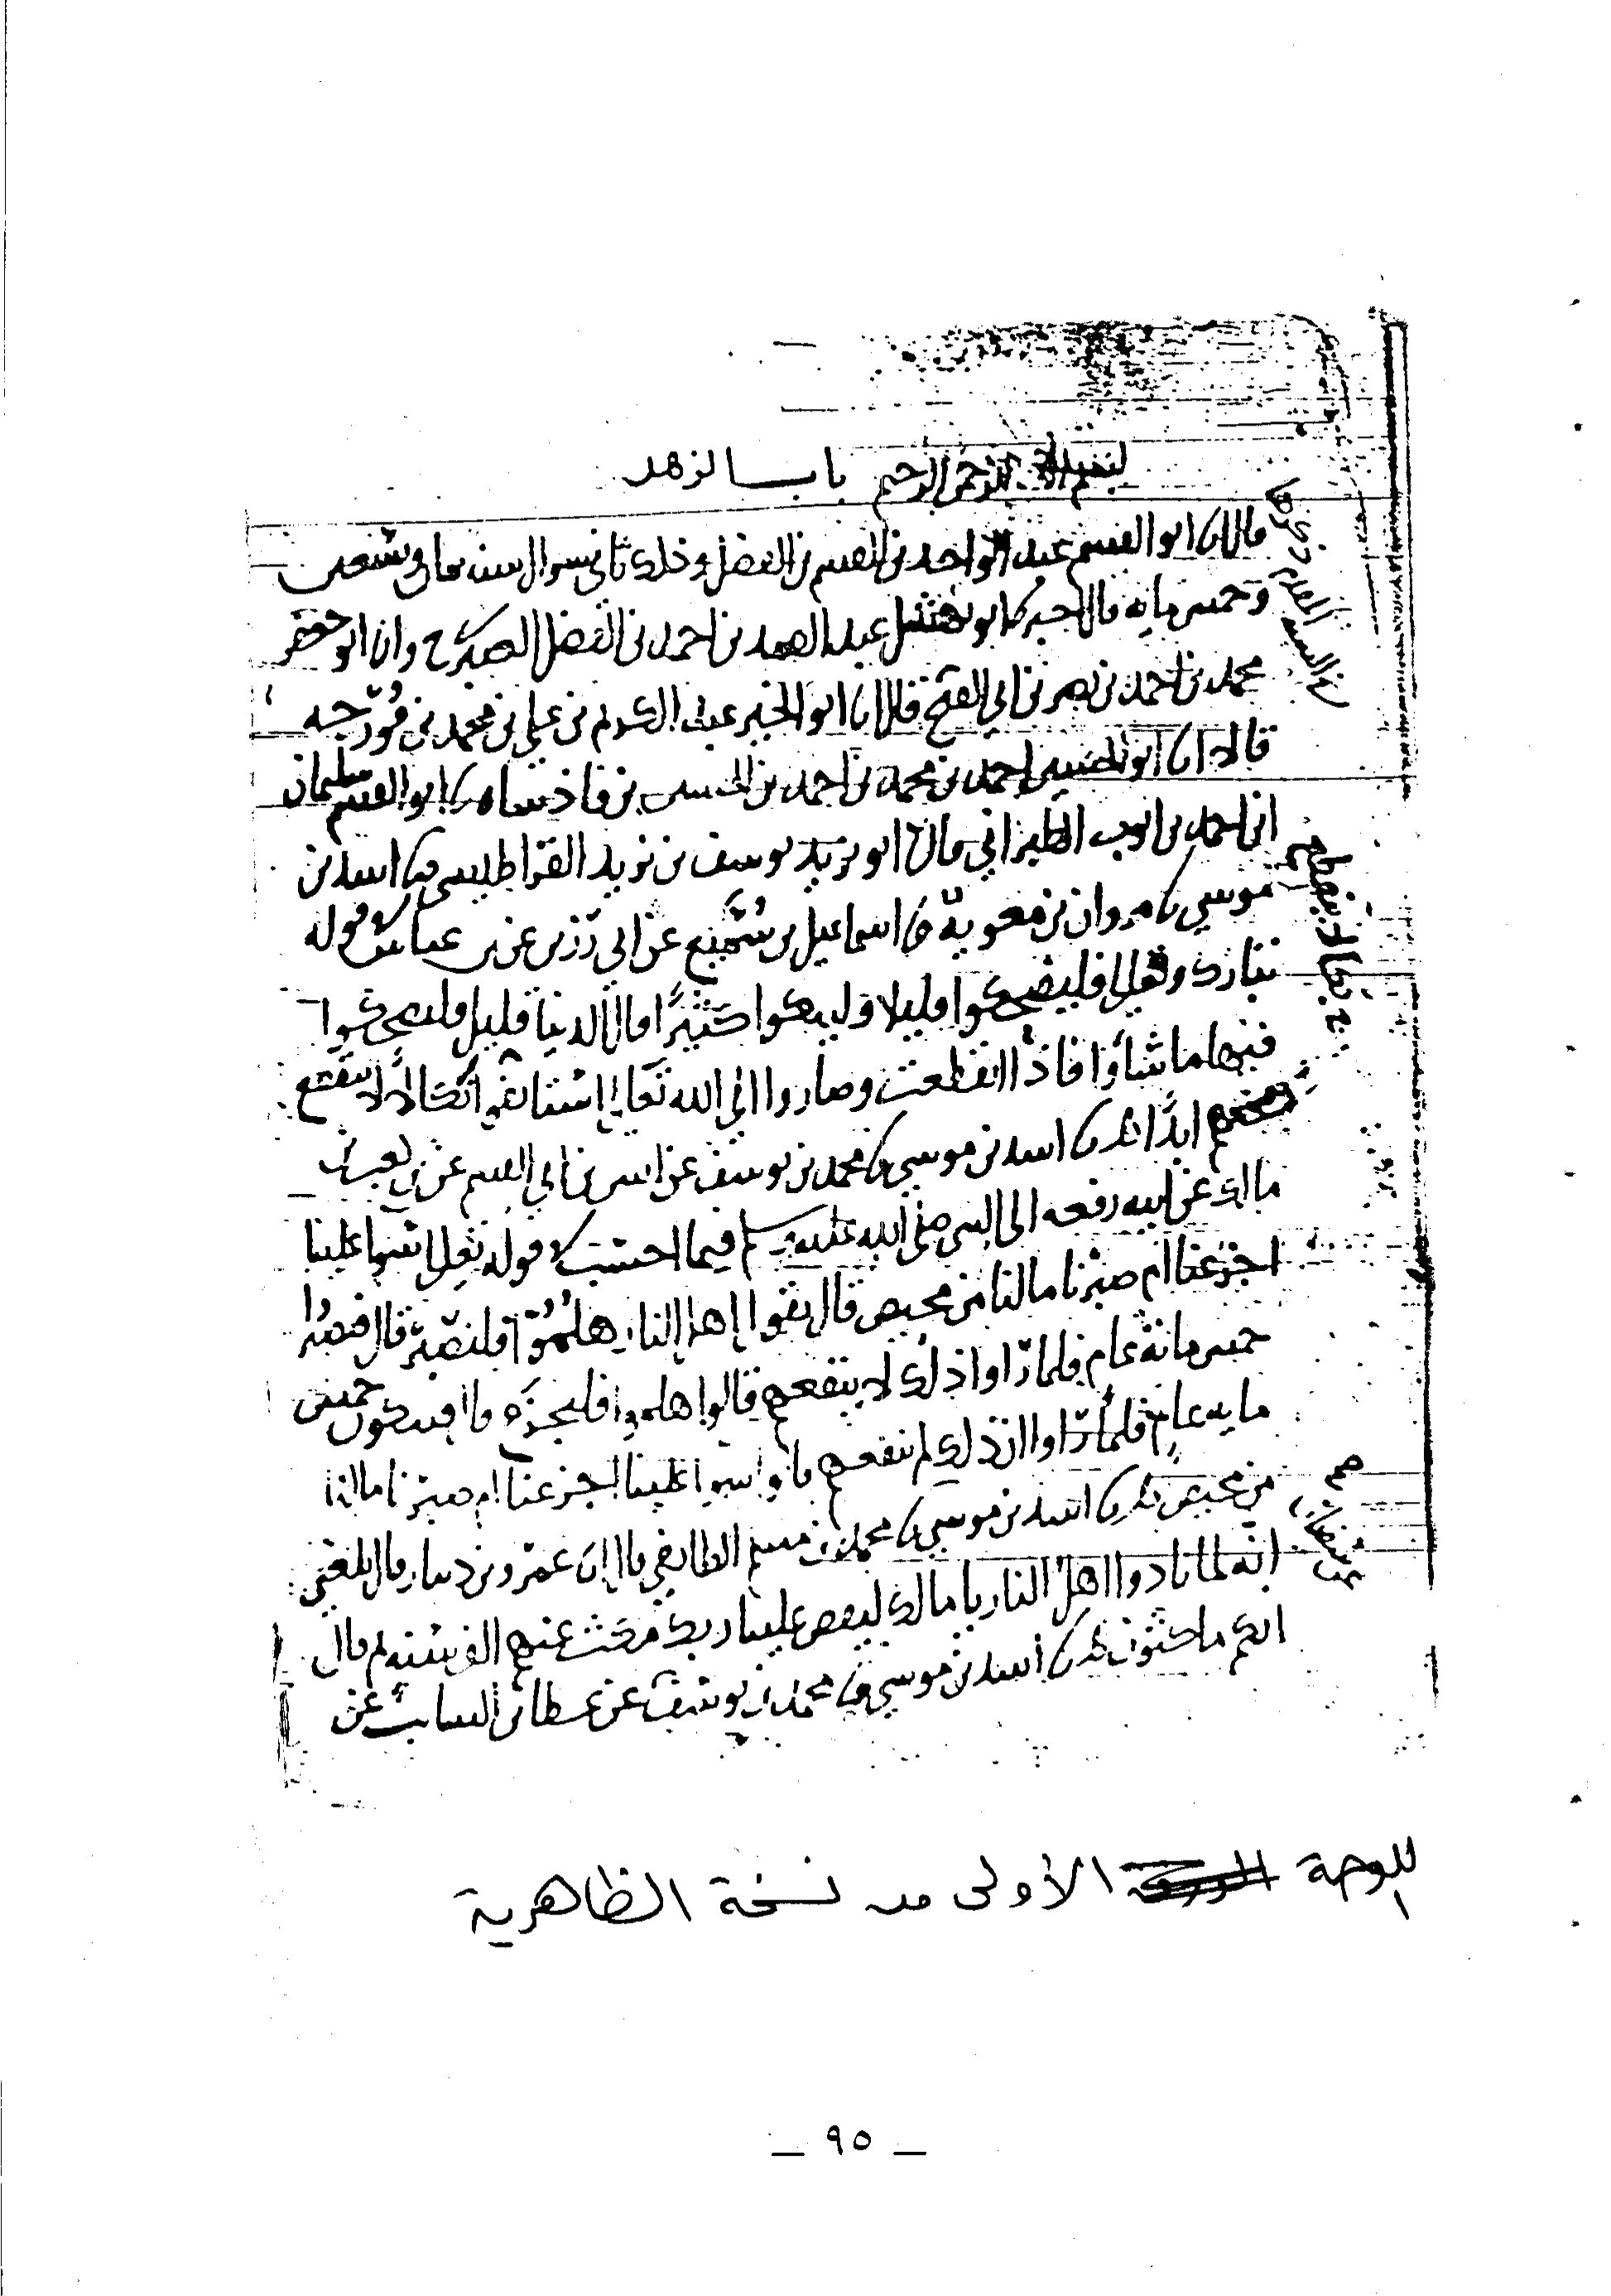 بسم الله الرحمن الرحيم باب الزهد
قال انا ابو القسم عبد الواحد بن القسم بن الفضل وذلك ثاني شوال سنه ثمان وتسعين
وخمس مايه قال اخبركم ابو نهشل عبد الصمد بن احمد بن الفضل وانا ابو جعفر
محمد بن احمد بن نصر بن ابي الفتح قالا انا ابو الخير عبد الكريم بن علي بن محمد بن فورجه
قالا انا ابو الحسين احمد بن محمد بن احمد بن الحسين بن فاذشاه نا ابو القسم سليمان
ابن احمد بن ايوب الطبراني قال نا ابو يزيد يوسف بن يزيد القراطيسي نا اسد بن
موسي نا مروان بن معوية نا اسماعيل بن سُمَيع عن ابي رزين عن بن عباس قوله
تبارك وتعلى فليضحكوا قليلا وليبكوا كثيرًا قال الدنيا قليل فليضحكوا
فيها ما شاؤا فاذا انقطعت وصاروا الى الله تعالى استانفوا بكاءً لا ينقطع
ابدًا نا اسد بن موسي نا محمد بن يوسف عن انس بن ابي القسم عن بن كعب بن
مالك عن ابيه رفعه الى النبي صلى الله عليه وسلم فيما احسب قوله تعلى سوا علينا
اجزعنا ام صبرنا ما لنا من محيص قال يقول اهل النار هلمّوا فلنصبر قال فصبروا
خمس مائة عام فلما راوا ذلك لا ينفعهم قالوا هلموا فلنجزع قال فيبكون خمس
مايه عام فلما راوا ان ذلك لم ينفعهم قالوا سوا علينا اجزعنا ام صبرنا ما لنا
من محيص نا اسد بن موسي نا محمد بن مسلم الطايفي قال ان عمرو بن دينار قال بلغني
انه لما نادوا اهل النار يا مالك ليقض علينا ربك مكث عنهم الف سنه ثم قال
انكم ماكثون نا اسد بن موسي نا محمد بن يوسف عن عطا بن السايب عن
اللوحة الأولى من نسخة الظاهرية
_ ٩٥ _